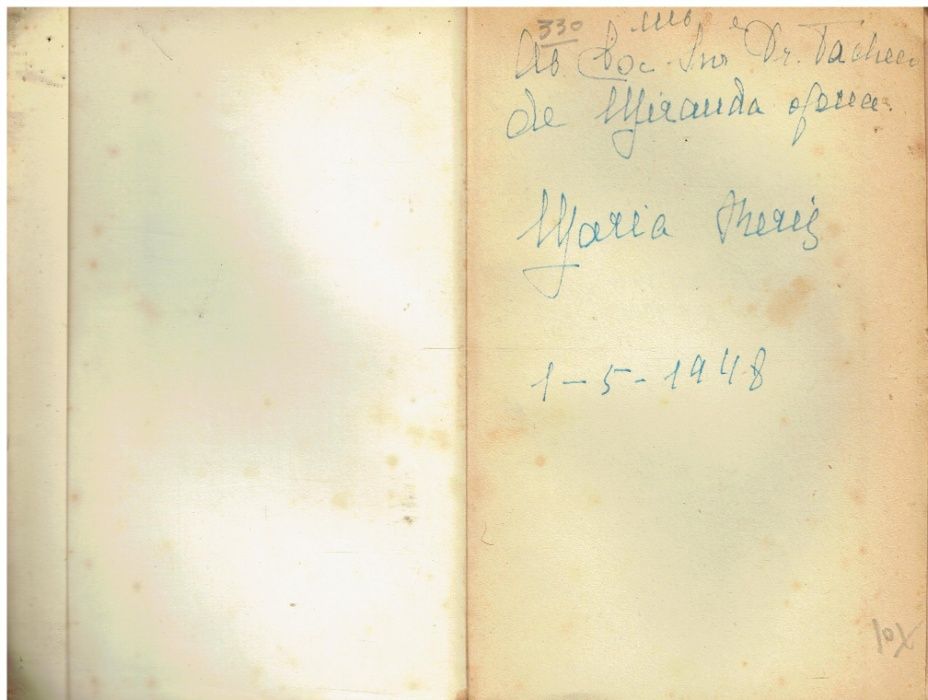 330
Ao Exc.mo Snr Dr. Pacheco
de Miranda oferece
Maria
1-5-1948
10X